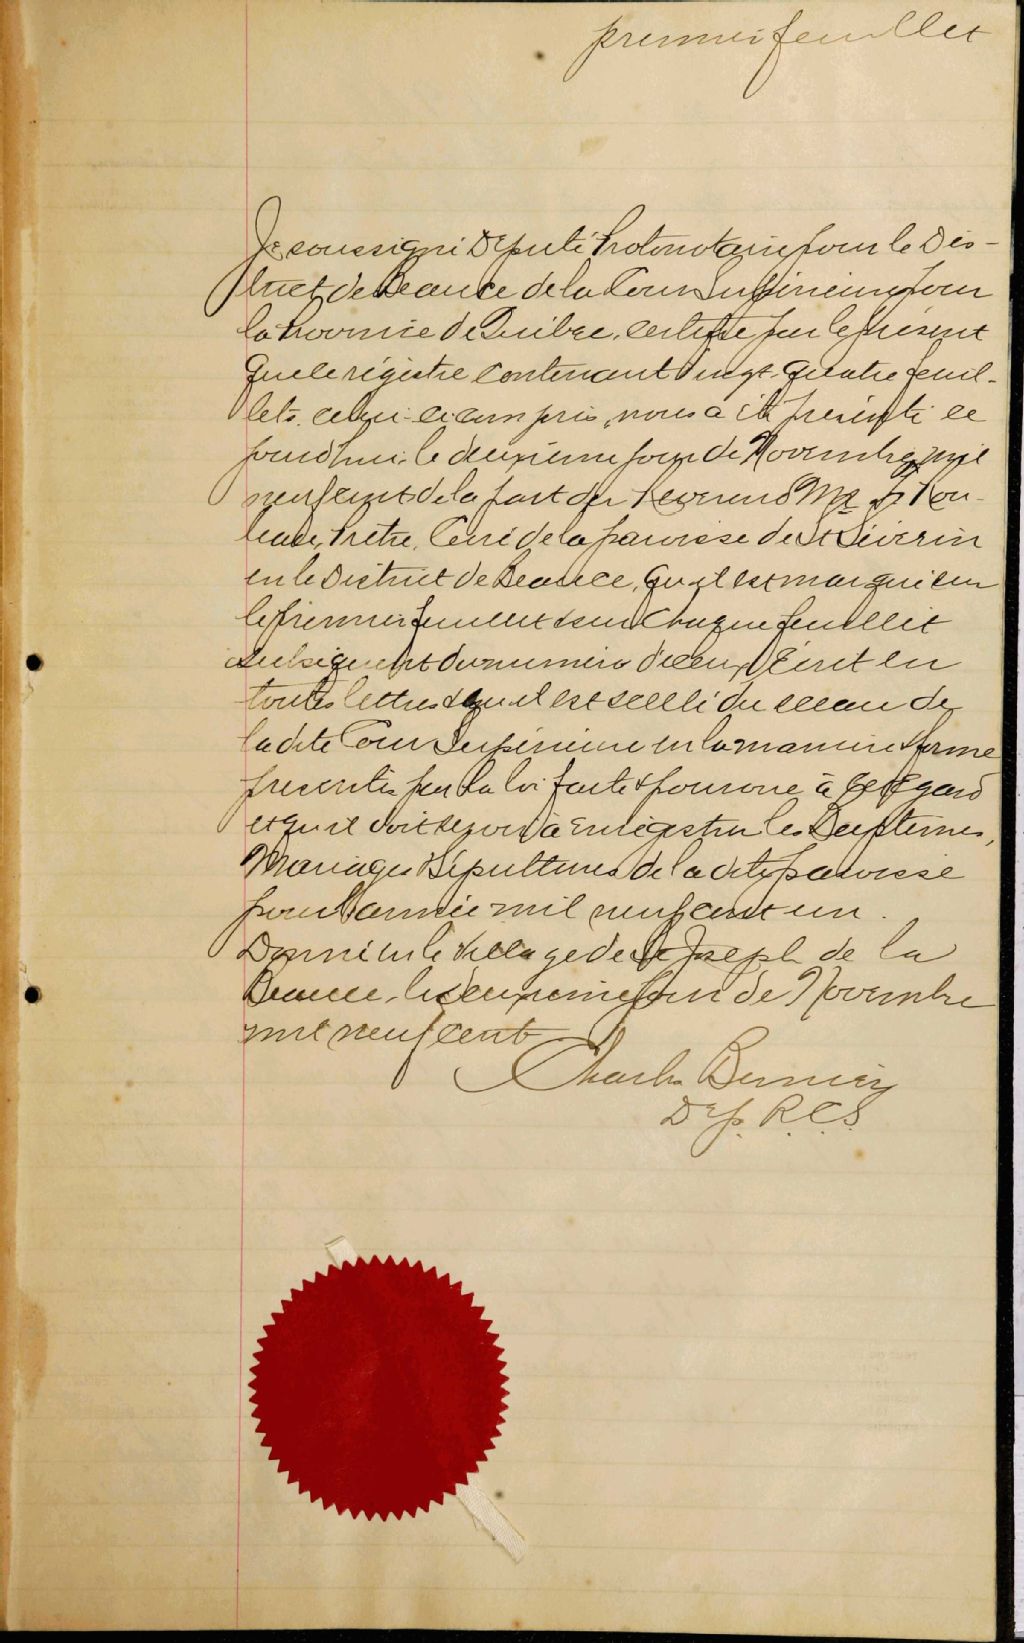 premier feuillet
Je soussigné Député Protonotaire pour le Dis-
trict de Beauce de la Cour Supérieure pour
la Province de Québec, certifie par le présent
que ce régistre contenant vingt-quatre feuil-
lets, celui-ci compris, nous a été présenté ce
jourd'hui, le deuxième jour de Novembre, mil
neuf cent de la part du Révérend Mr. Rou-
leau, Prêtre, Curé de la paroisse de St Séverin
en le District de Beauce, qu'il est marqué sur
le premier feuillet & sur chaque feuillet
subséquent du numéro d'eux, écrit en
toutes lettres & qu'il est scellé du sceau de
la dite Cour Supérieure en la manière & forme
prescrites par la loi faite & pourvue à cet égard
et qu'il doit servir à enrégistrer les Baptêmes,
Mariages & Sépultures de la dite paroisse
pour l'année mil neuf cent un.
Donné en le Village de St Joseph de la
Beauce, le deuxième jour de Novembre
mil neuf cent
Charles Bernier
Dep. P.C.S.